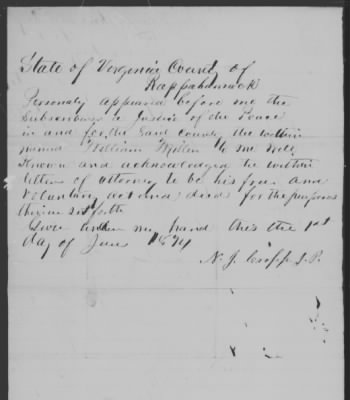 State of Virginia County of
Rappahannock
Personaly appeared before me the
Subscriber a Justice of the Peace
in and for the Said County the within
named William Miller to me well
Known and acknowledged the within
letters of attorney to be his free and
Voluntary act and deed for the purposes
therein set forth
Given under my hand this the 1st
day of June 1874
N. J. J.P.